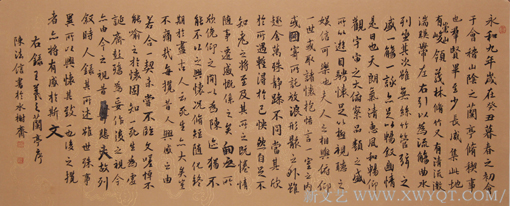 永和九年歲在癸丑暮春之初會
于會稽山陰之蘭亭脩禊事
也群賢畢至少長咸集此地
有崇山峻領茂林脩竹又有清流激
湍暎帶左右引以為流觴曲水
列坐其次雖無絲竹管弦之
盛一觴一詠亦足以暢敘幽情
是日也天朗氣清惠風和暢仰
觀宇宙之大俯察品類之盛
所以遊目騁懷足以極視聽之
娛信可樂也夫人之相與俯仰
一世或取諸懷抱悟言一室之內
或因寄所託放浪形骸之外雖
趣舍萬殊靜躁不同當其欣
於所遇暫得於己怏然自足不
知老之將至及其所之既惓情
隨事遷感慨係之矣向之所
欣俛仰之間以為陳迹猶不
能不以之興懷況脩短隨化終
期於盡古人云死生亦大矣豈
不痛哉每攬昔人興感之由
若合一契未嘗不臨文嗟悼不
能喻之於懷固知一死生為虛
誕齊彭殤為妄作後之視今
亦由今之視昔悲夫故列
敘時人錄其所述雖世殊事
異所以興懷其致一也後之攬
者亦將有感於斯文
右錄王羲之蘭亭序
陳法信書於水樹齋
新文艺